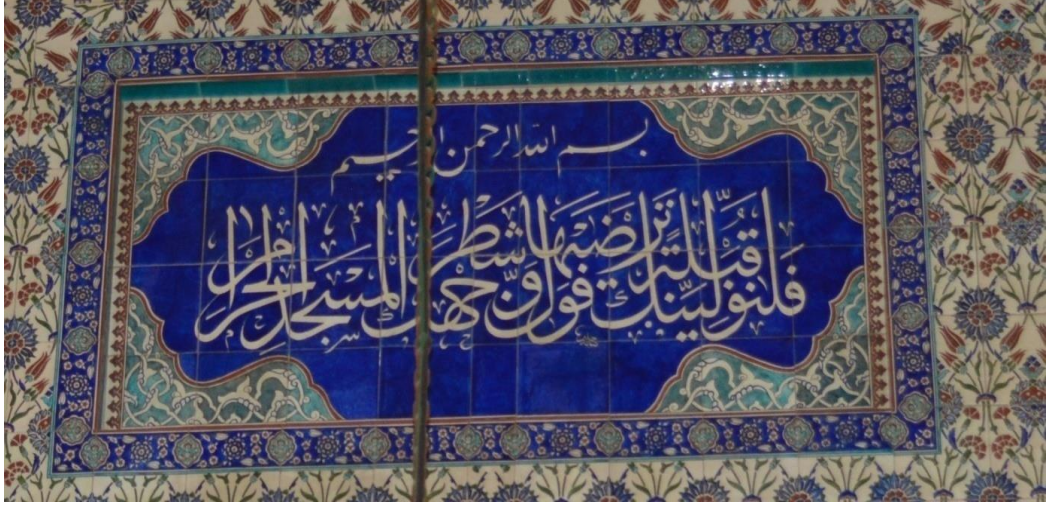 بسم الله الرحمن الرحيم
فلنولينك قبلة ترضىها فول وجهك شطر المسجد الحرام